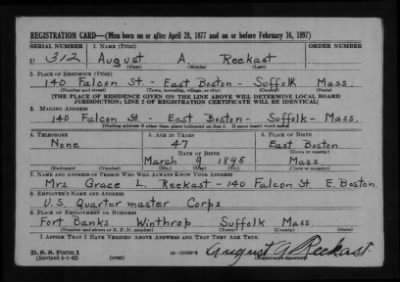 REGISTRATION CARD—(Men born on or after April 28, 1877 and on or before February 16, 1897)
SERIAL NUMBER 1. NAME (Print) ORDER NUMBER
U 312 August A Reekast
(First) (Middle) (Last)
2. PLACE OF RESIDENCE (Print)
140 Falcon St - East Boston - Suffolk Mass.
(Number and street) (Town, township, village, or city) (County) (State)
[THE PLACE OF RESIDENCE GIVEN ON THE LINE ABOVE WILL DETERMINE LOCAL BOARD
JURISDICTION; LINE 2 OF REGISTRATION CERTIFICATE WILL BE IDENTICAL]
3. MAILING ADDRESS
140 Falcon St - East Boston - Suffolk - Mass.
[Mailing address if other than place indicated on line 2. If same insert word same]
4. TELEPHONE 5. AGE IN YEARS 6. PLACE OF BIRTH
None 47 East Boston
DATE OF BIRTH (Town or county)
March 9 1895 Mass.
(Exchange) (Number) (Mo.) (Day) (Yr.) (State or country)
7. NAME AND ADDRESS OF PERSON WHO WILL ALWAYS KNOW YOUR ADDRESS
Mrs. Grace L. Reekast - 140 Falcon St E. Boston.
8. EMPLOYER'S NAME AND ADDRESS
U.S. Quartermaster Corps
9. PLACE OF EMPLOYMENT OR BUSINESS
Fort Banks Winthrop Suffolk Mass
(Number and street or R. F. D. number) (Town) (County) (State)
I AFFIRM THAT I HAVE VERIFIED ABOVE ANSWERS AND THAT THEY ARE TRUE.
D. S. S. Form 1
(Revised 4-1-42) (over)
August A Reekast